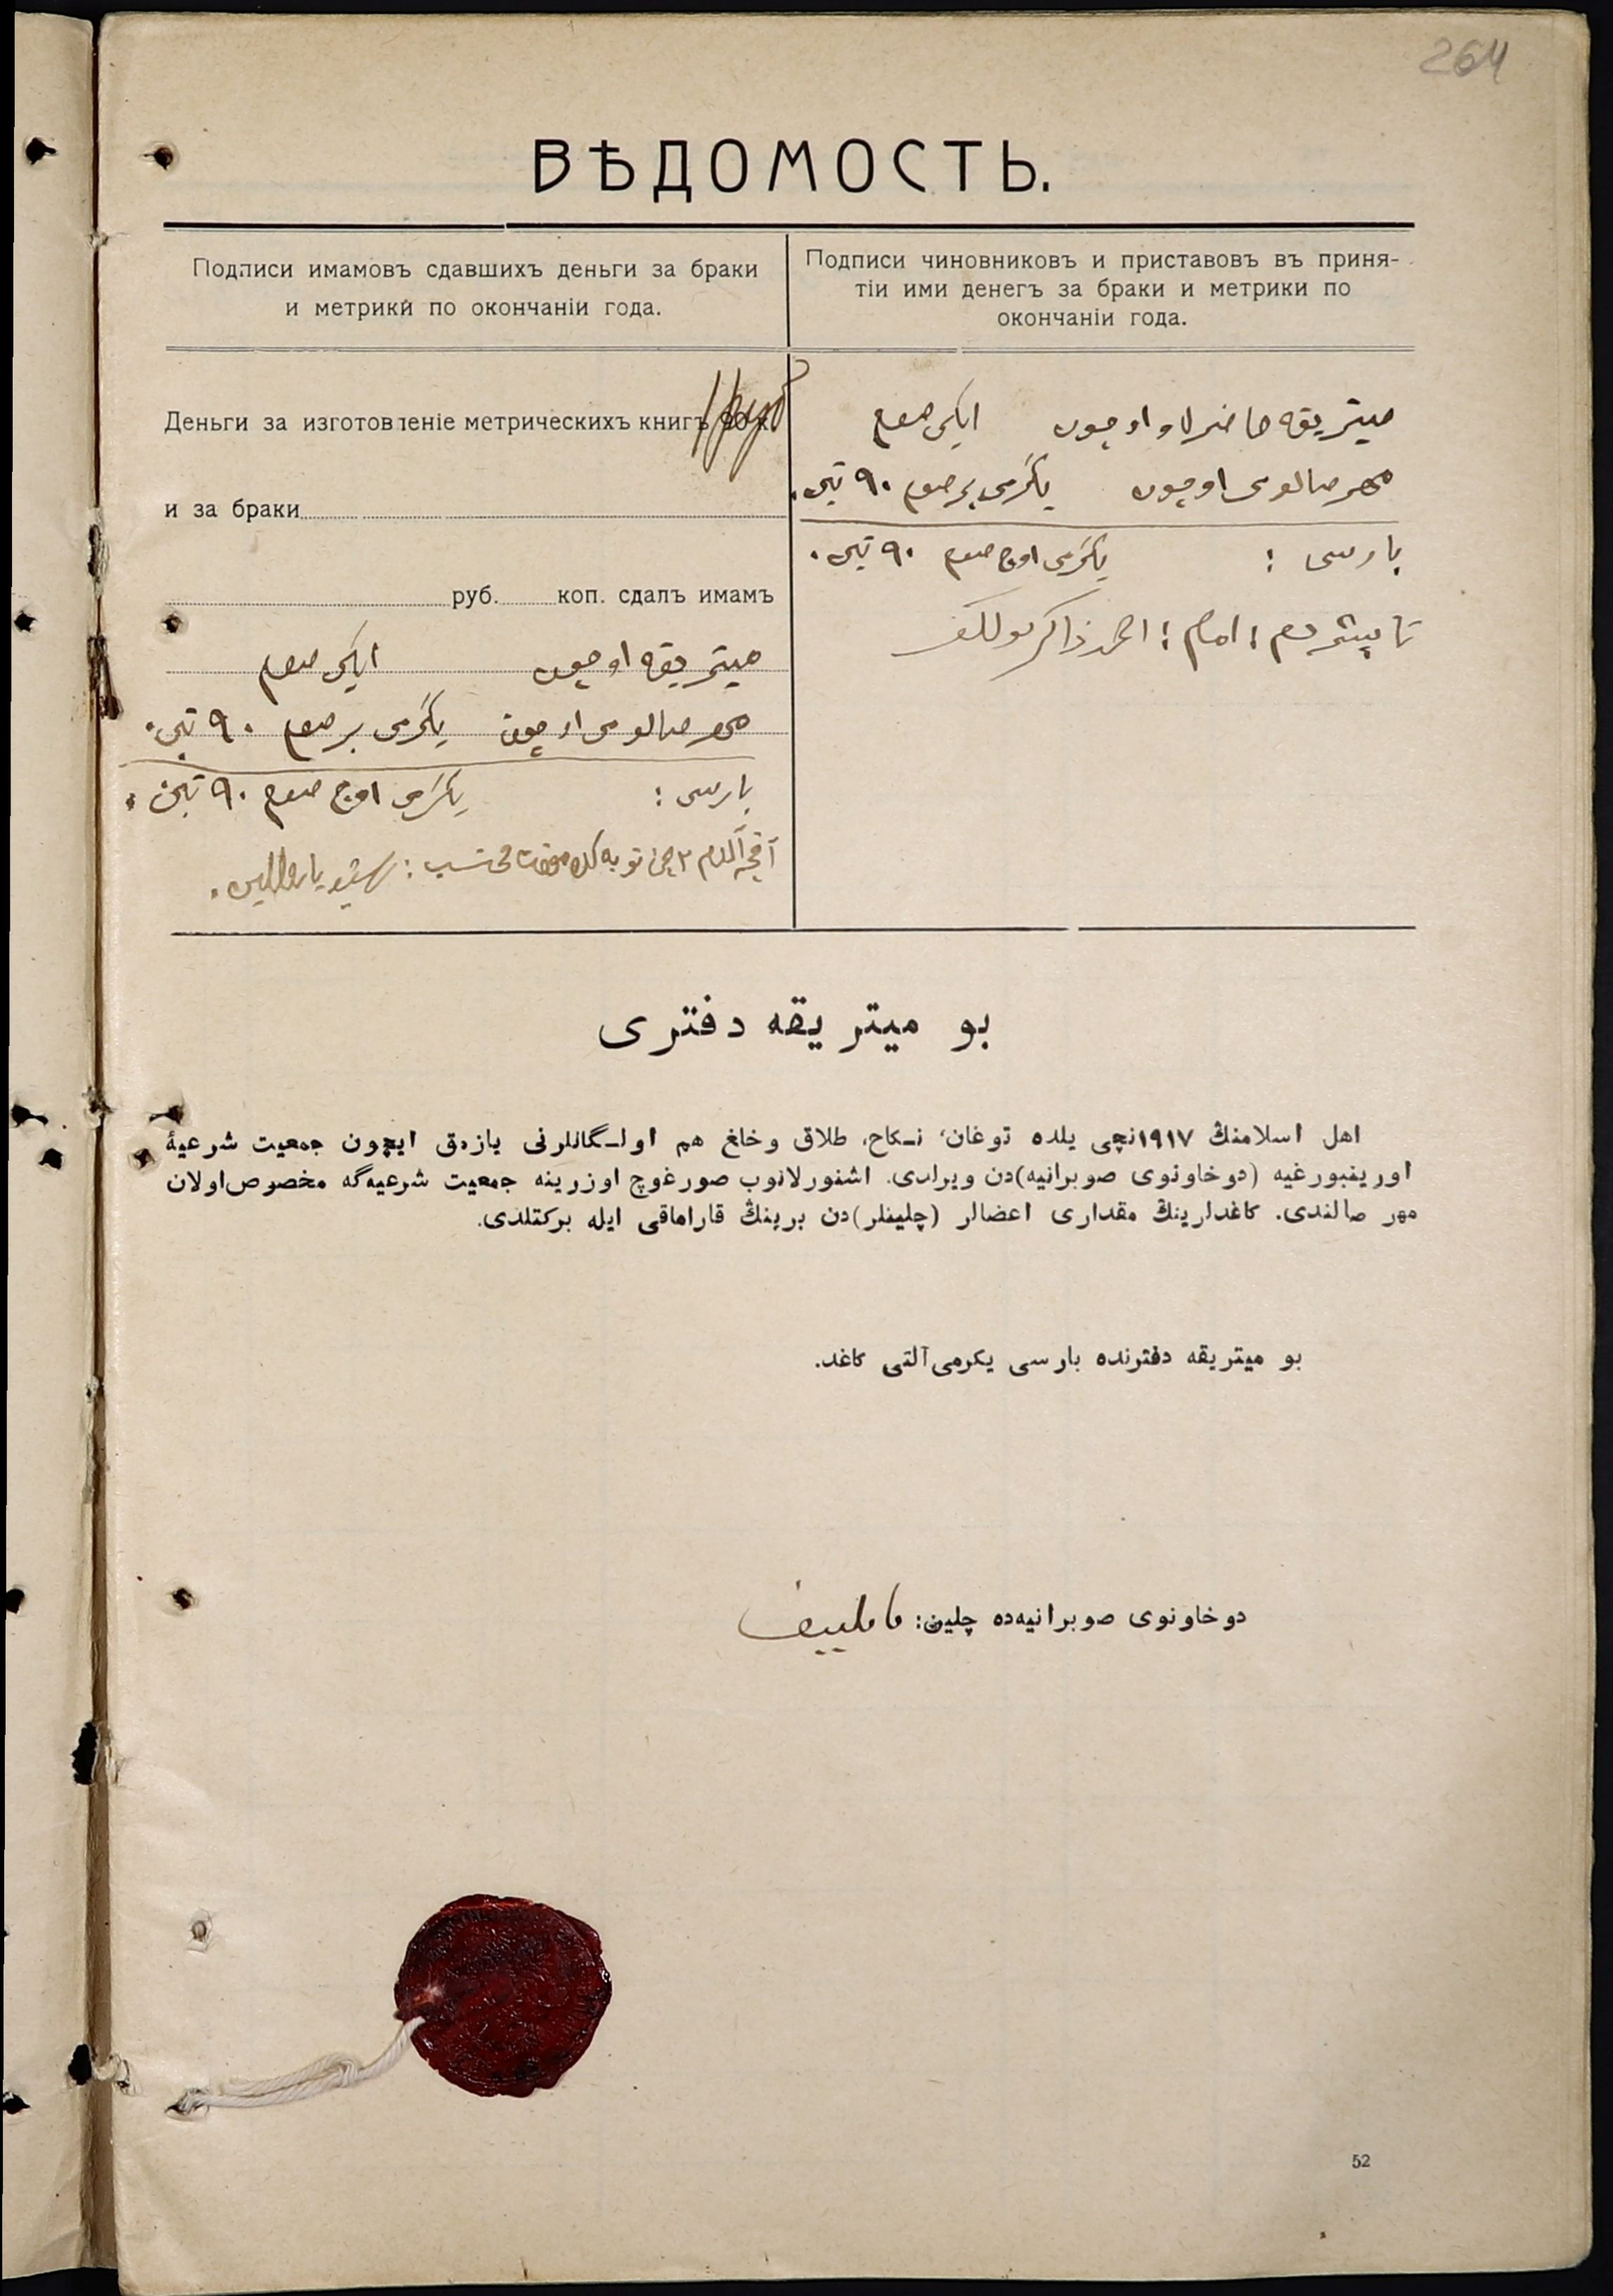 264
ВѢДОМОСТЬ.
Подписи имамовъ сдавшихъ деньги за браки
и метрикй по окончаніи года.
Подписи чиновниковъ и приставовъ въ приня-
тіи ими денегъ за браки и метрики по
окончаніи года.
Деньги за изготовленіе метрическихъ книгъ 90 к.
и за браки
руб. коп. сдалъ имамъ
ميتريقه اوچون ايكى صوم
مهر صالومى اوچون يكرمى بر صوم ٩٠ تين.
بارسى : يكرمى اوچ صوم ٩٠ تين.
آقچه آلدم
ميتريقه حاضرلاو اوچون ايكى صوم
مهر صالومى اوچون يكرمى بر صوم ٩٠ تين.
بارسى : يكرمى اوچ صوم ٩٠ تين.
تاپشردم : امام : احمدذاكر
بو ميتريقه دفترى
اهل اسلامنڭ ١٩١٧نچى يلده توغان، نـكاح، طلاق وخلغ هم اولـگانلرنى يازمق ايچون جمعيت شرعيهٔ
اورينبورغيه (دوخاونوى صوبرانيه)دن ويرلدى. اشنورلانوب صورغوچ اوزرينه جمعيت شرعيه‌گه مخصوص اولان
مهر صالندى. كاغدلرينڭ مقدارى اعضالر (چلينلر)دن برينڭ قاراماقى ايله بركتلدى.
بو ميتريقه دفترنده بارسى يكرمى آلتى كاغد.
دوخاونوى صوبرانيه‌ده چلين:
52